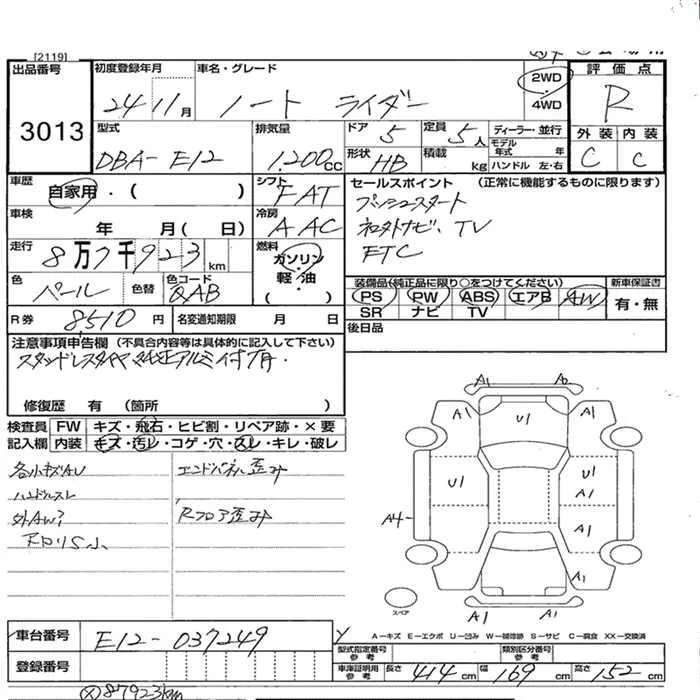 [2119]
出品番号 3013
初度登録年月 24 11月
車名・グレード ノート ライダー
2WD
・
4WD
評価点 R
外装 内装
C C
型式 DBA-E12
排気量 1.200cc
ドア 5
定員 5人
ディーラー・並行
モデル年式 年
形状 HB
積載 kg
ハンドル 左・右
車歴 自家用・( )
シフト FAT
セールスポイント (正常に機能するものに限ります)
プッシュスタート
車検 年 月( 日)
冷房 AAC
TV
ETC
走行 8万7千923km
燃料 ガソリン・軽・油
色 パール
色替
色コード QAB
装備品(純正品に限り○をつけてください)
PS PW ABS エアB AW
SR ナビ TV
新車保証書 有・無
R券 8,510円
名変通知期限 月 日
後日品
注意事項申告欄 (不具合内容等は具体的に記入して下さい)
スタッドレスタイヤ 純正アルミ付
修復歴 有 (箇所 )
検査員記入欄
FW キズ・飛石・ヒビ割・リペア跡・×要
内装 キズ・汚レ・コゲ・穴・スレ・キレ・破レ
各小キズAU
エンドパネル歪み
ハンドルスレ
外AW?
Rフロア歪み
A1 A0
A1 U1 A1
U1 U1 A1
A4 A1
A1
A1 A1
スペア
A-キズ E-エクボ U-凹み W-補修跡 S-サビ C-腐食 XX-交換済
車台番号 E12-037249
型式指定番号参考
類別区分番号参考
登録番号
車庫証明用参考 長さ 414cm 幅 169cm 高さ 152cm
87923km